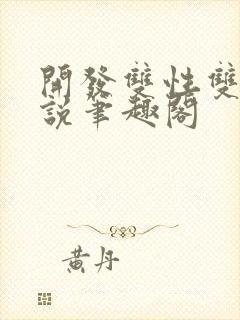 開發雙性雙
說筆趣閣
黃丹